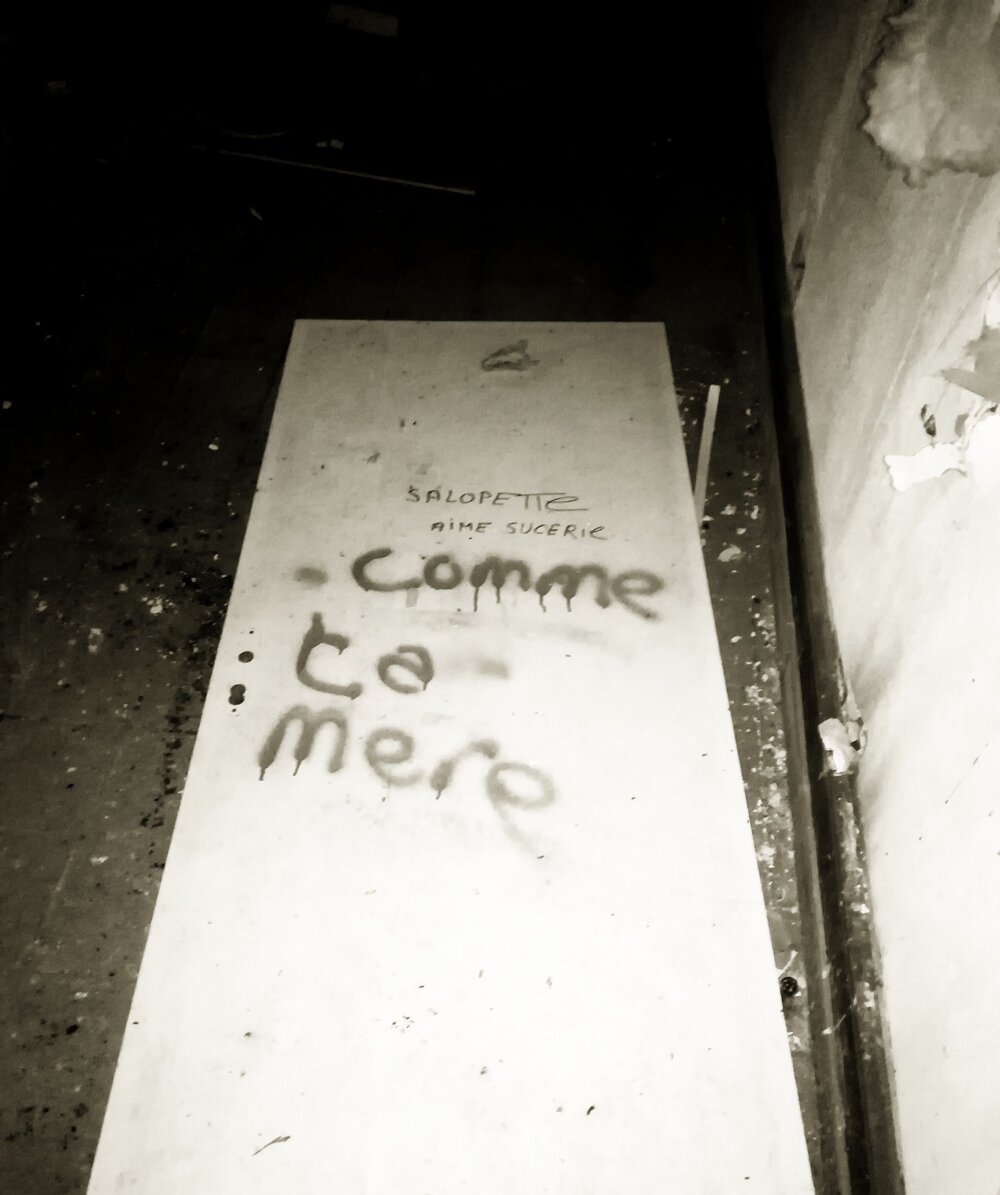 SALOPETTE
AIME SUCERIE
Comme
ta
mere